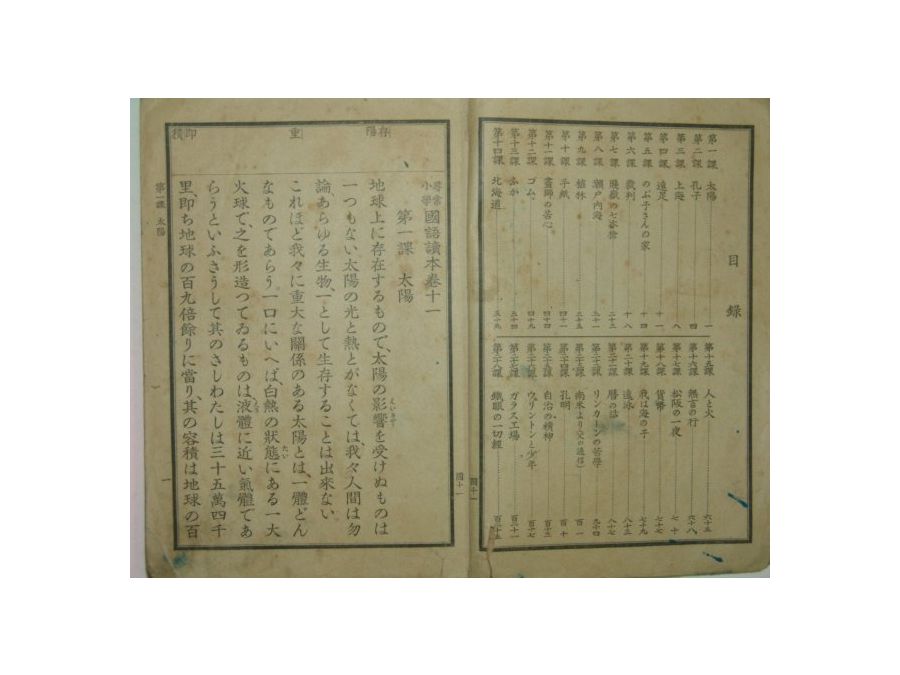 目録
第一課 太陽 一
第二課 孔子 四
第三課 上海 八
第四課 遠足 十一
第五課 のぶ子さんの家 十四
第六課 裁判 十八
第七課
第八課 瀬戸内海
第九課 植林
第十課 手紙 四十一
第十一課 畫師の苦心 四十四
第十二課 ゴム 四十九
第十三課 ふか 五十四
第十四課 北海道 五十九
第十五課 人と火 六十五
第十六課 無言の行 六十八
第十七課 松阪の一夜 七十
第十八課 貨幣 七十七
第十九課 我は海の子 七十九
第二十課 遠泳 八十三
第二十一課 暦の話 八十七
第二十二課 リンカーンの苦學 九十四
第二十三課 南米より(父の通信) 百一
第二十四課 孔明 百十
第二十五課 自治の精神 百十三
第二十六課 ウェリントンと少年 百十七
第二十七課 ガラス工場 百二十一
第二十八課 鐵眼の一切經 百二十五
國十一
國十一
存陽
重
即積
尋常小學 國語讀本卷十一
第一課 太陽
地球上に存在するもので、太陽の影響を受けぬものは
一つもない。太陽の光と熱とがなくては我々人間は勿
論、あらゆる生物、一として生存することは出來ない。
これほど我々に重大な關係のある太陽とは、一體どん
なものであらう。一口にいへば、白熱の狀態にある一大
火球で、之を形造つてゐるものは、液體に近い氣體であ
らうといふ。さうして其のさしわたしは三十五萬四千
里、即ち地球の百九倍餘りに當り、其の容積は地球の百
第一課 太陽
一